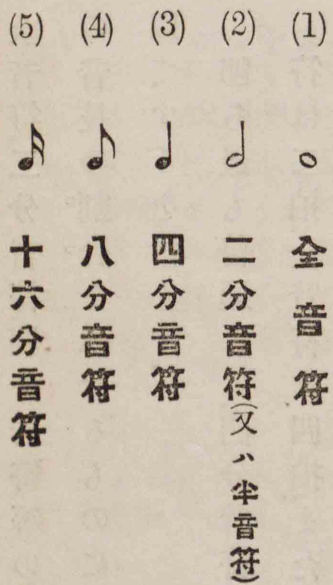 (1) 全音符
(2) 二分音符(又ハ半音符)
(3) 四分音符
(4) 八分音符
(5) 十六分音符